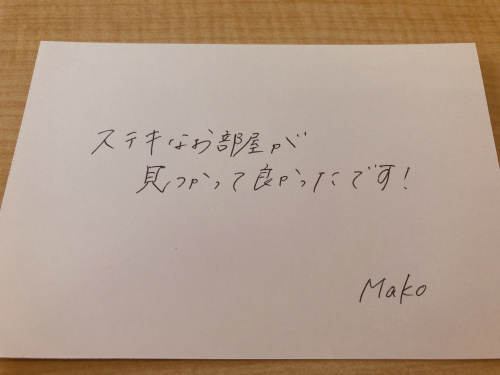 ステキなお部屋が
見つかって良かったです!
Mako